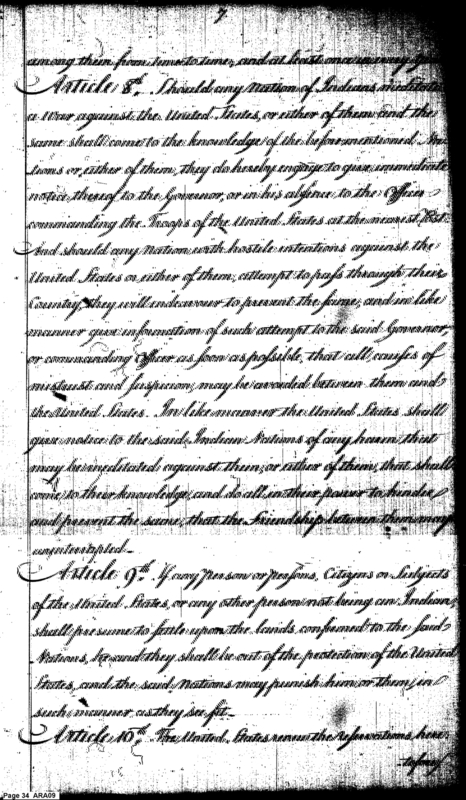 7
among them from time to time, and at least once in every year
Article 8th. Should any Nation of Indians, meditate
a War against the United States, or either of them and the
same shall come to the knowledge of the before mentioned Na-
tions or, either of them, they do hereby engage to give immediate
notice thereof to the Governor, or in his absence to the Officer
commanding the Troops of the United States at the nearest Post.
And should any Nation, with hostile intentions against the
United States or, either of them, attempt to pass through their
Country, they will endeavour to prevent the same, and in like
manner give information of such attempt to the said Governor,
or commanding Officer as soon as possible, that all causes of
mistrust and suspicion, may be avoided between them and
the United States. In like manner the United States shall
give notice to the said Indian Nations of any harm that
may be meditated against them, or either of them, that shall
come to their knowledge, and do all in their power to hinder
and prevent the same, that the Friendship between them may
uninterrupted_
Article 9th. If any person or persons, Citizens or Subjects
of the United States, or any other person not being an Indian,
shall presume to settle upon the lands confirmed to the said
Nations, he and they shall be out of the protection of the United
States, and the said Nations may punish him or them, in
such manner as they see fit_
Article 10th. The United States renew the reservations, here-
tofore
Page 34 ARA09